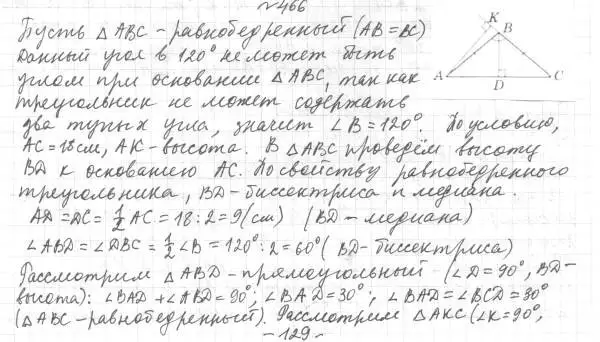 №466
K
Пусть △ABC - равнобедренный (AB = BC)
B
Данный угол в 120° не может быть
углом при основании △ABC, так как
A D C
треугольник не может содержать
два тупых угла, значит ∠B = 120°. По условию,
AC = 18см, AK - высота. В △ABC проведём высоту
BD к основанию AC. По свойству равнобедренного
треугольника, BD - биссектриса и медиана.
AD = DC = 1/2 AC = 18 : 2 = 9 (см) (BD - медиана)
∠ABD = ∠DBC = 1/2 ∠B = 120° : 2 = 60° (BD - биссектриса)
Рассмотрим △ABD - прямоугольный (∠D = 90°, BD -
высота): ∠BAD + ∠ABD = 90°; ∠BAD = 30°; ∠BAD = ∠BCD = 30°
(△ABC - равнобедренный). Рассмотрим △AKC (∠K = 90°,
- 129 -